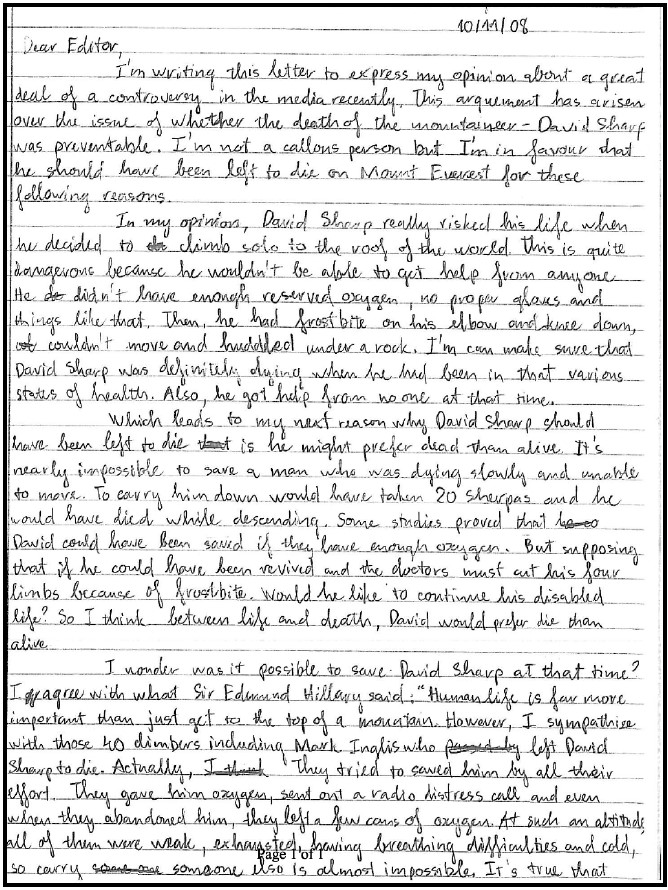 10/11/08
Dear Editor,
I'm writing this letter to express my opinion about a great
deal of a controversy in the media recently. This arquement has arisen
over the issue of whether the death of the mountaineer - David Sharp
was preventable. I'm not a callous person but I'm in favour that
he should have been left to die on Mount Everest for these
following reasons.
In my opinion, David Sharp really risked his life when
he decided to climb solo to the roof of the world. This is quite
dangerous because he wouldn't be able to get help from anyone.
He didn't have enough reserved oxygen, no proper gloves and
things like that. Then, he had frostbite on his elbow and knee down,
couldn't move and huddled under a rock. I'm can make sure that
David Sharp was definitely dying when he had been in that various
status of health. Also, he got help from no one at that time.
Which leads to my next reason why David Sharp should
have been left to die is he might prefer dead than alive. It's
nearly impossible to save a man who was dying slowly and unable
to move. To carry him down would have taken 20 sherpas and he
would have died while descending. Some studies proved that
David could have been saved if they have enough oxygen. But supposing
that if he could have been revived and the doctors must cut his four
limbs because of frostbite. Would he like to continue his disabled
life? So I think between life and death, David would prefer die than
alive.
I wonder was it possible to save David Sharp at that time?
I agree with what Sir Edmund Hillary said: "Human life is far more
important than just get to the top of a mountain. However, I sympathise
with those 40 climbers including Mark Inglis who left David
Sharp to die. Actually, They tried to saved him by all their
effort. They gave him oxygen, sent out a radio distress call and even
when they abandoned him, they left a few cans of oxygen. At such an altitude
all of them were weak, exhausted, having breathing difficulties and cold,
so carry someone else is almost impossible. It's true that
Page 1 of 1